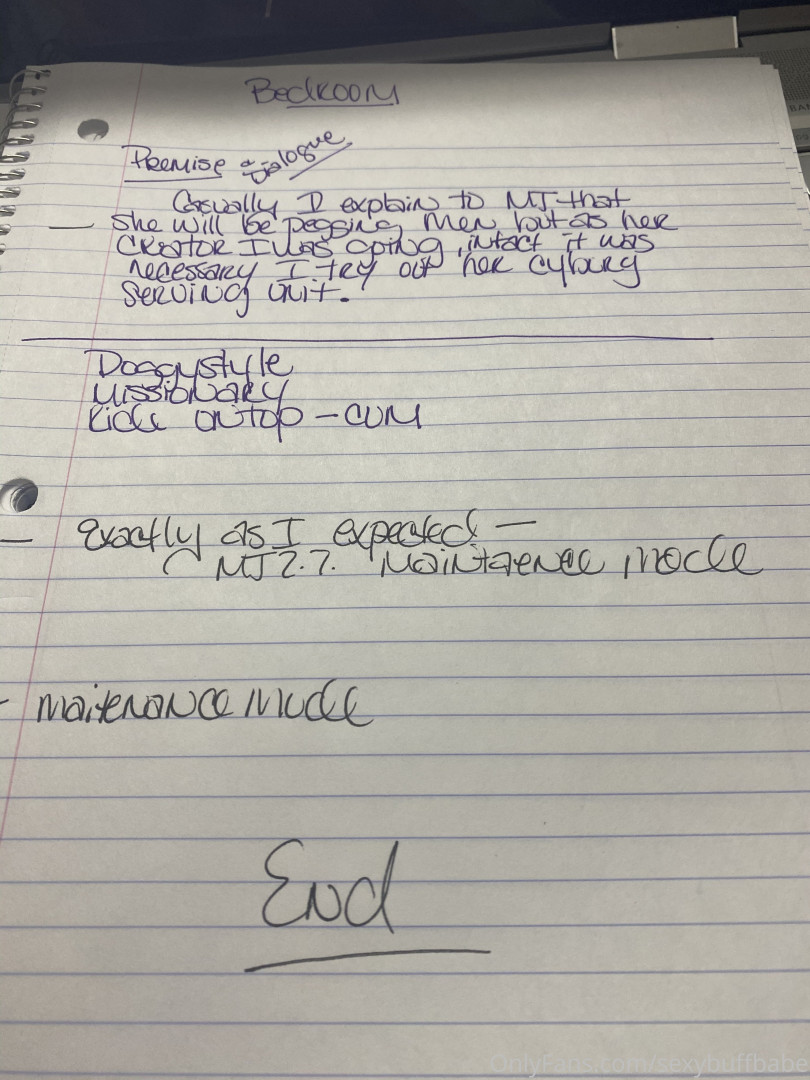 Bedroom
Premise & Dialogue
Casually I explain to MJ that
— she will be pegging men but as her
creator I was going, infact it was
necessary I try out her cyburg
serving unit.
Doggystyle
Missionary
Ride ontop - CUM
— Exactly as I expected —
MJ 2.7. Maintaenece mode
- maitenance mode
End
OnlyFans.com/sexybuffbabe